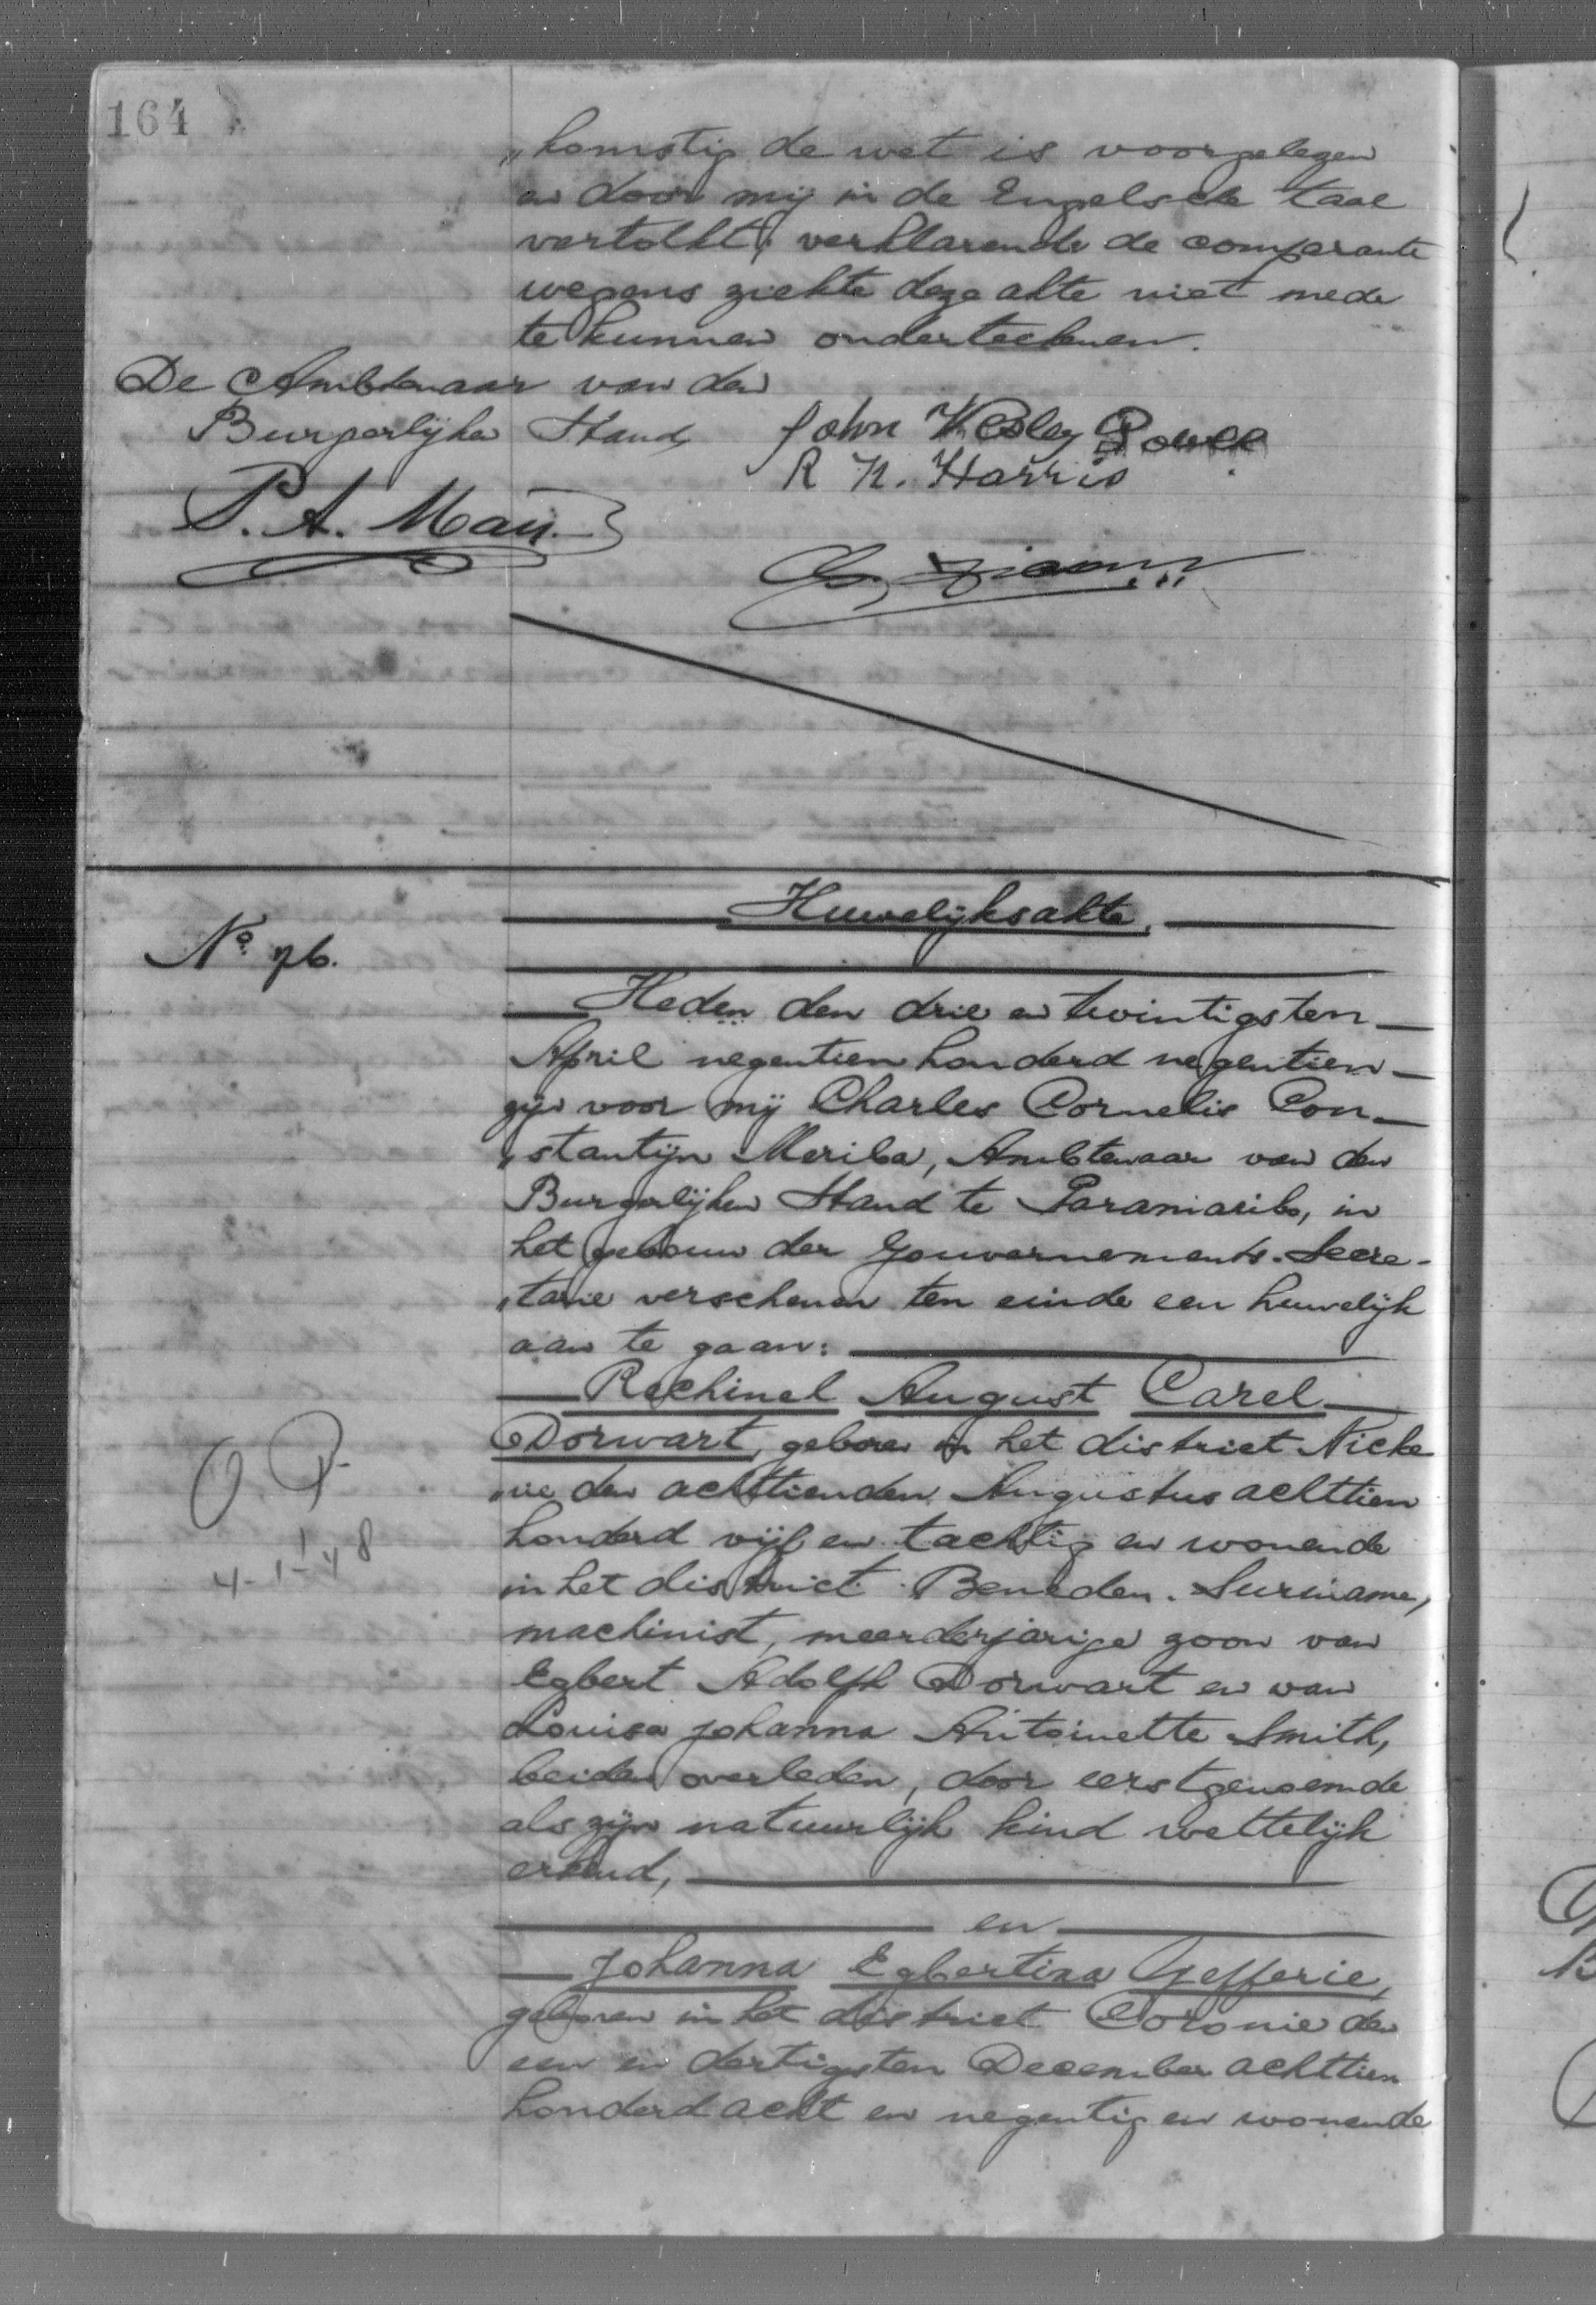 164
„komstig de wet is voorgelezen
en door mij in de Engelsche taal
vertolkt, verklarende de comparante
wegens ziekte deze akte niet mede
te kunnen onderteekenen.
De Ambtenaar van den
Burgerlijken Stand,
John Wesley Powell
R N. Harris
P. A. May
Huwelijksakte.
No 76.
Heden den drie en twintigsten
April negentien honderd negentien
zijn voor mij Charles Cornelis Con-
„stantijn Meriba, Ambtenaar van den
Burgerlijken Stand te Paramaribo, in
het gebouw der Gouvernements-Secre-
„tarie verschenen ten einde een huwelijk
aan te gaan:
Rechinel August Carel
Dorwart, geboren in het district Nicke
„rie den achttienden Augustus achttien
honderd vijf en tachtig en wonende
in het district Beneden-Suriname,
machinist, meerderjarige zoon van
Egbert Adolph Dorwart en van
Louisa Johanna Antoinette Smith,
beiden overleden, door eerstgenoemde
als zijn natuurlijk kind wettelijk
erkend,
en
Johanna Egbertina Gefferie,
geboren in het district Coronie den
een en dertigsten December achttien
honderd acht en negentig en wonende
O P.
4-1-48